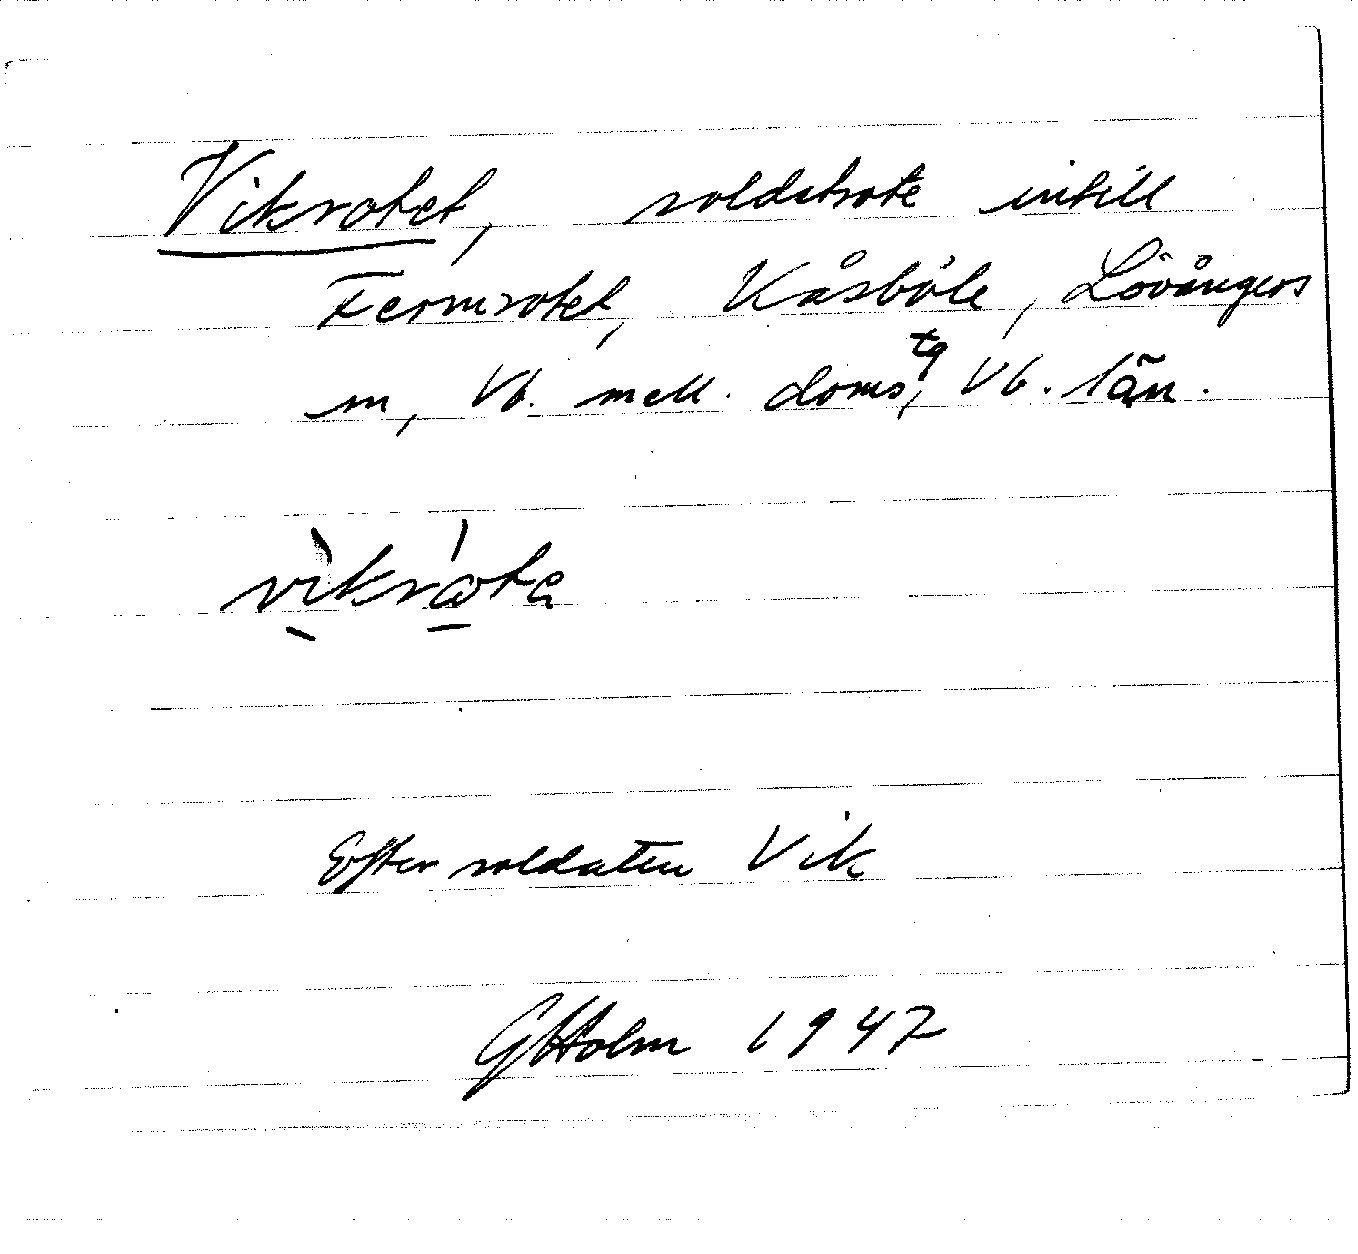 Vikrotet, soldatrote intill
Fermrotet, Kåsböle, Lövångers
sn, Vb. mell. doms tg, Vb. län.
vìkrǿta
Efter soldaten Vik
G Holm 1947